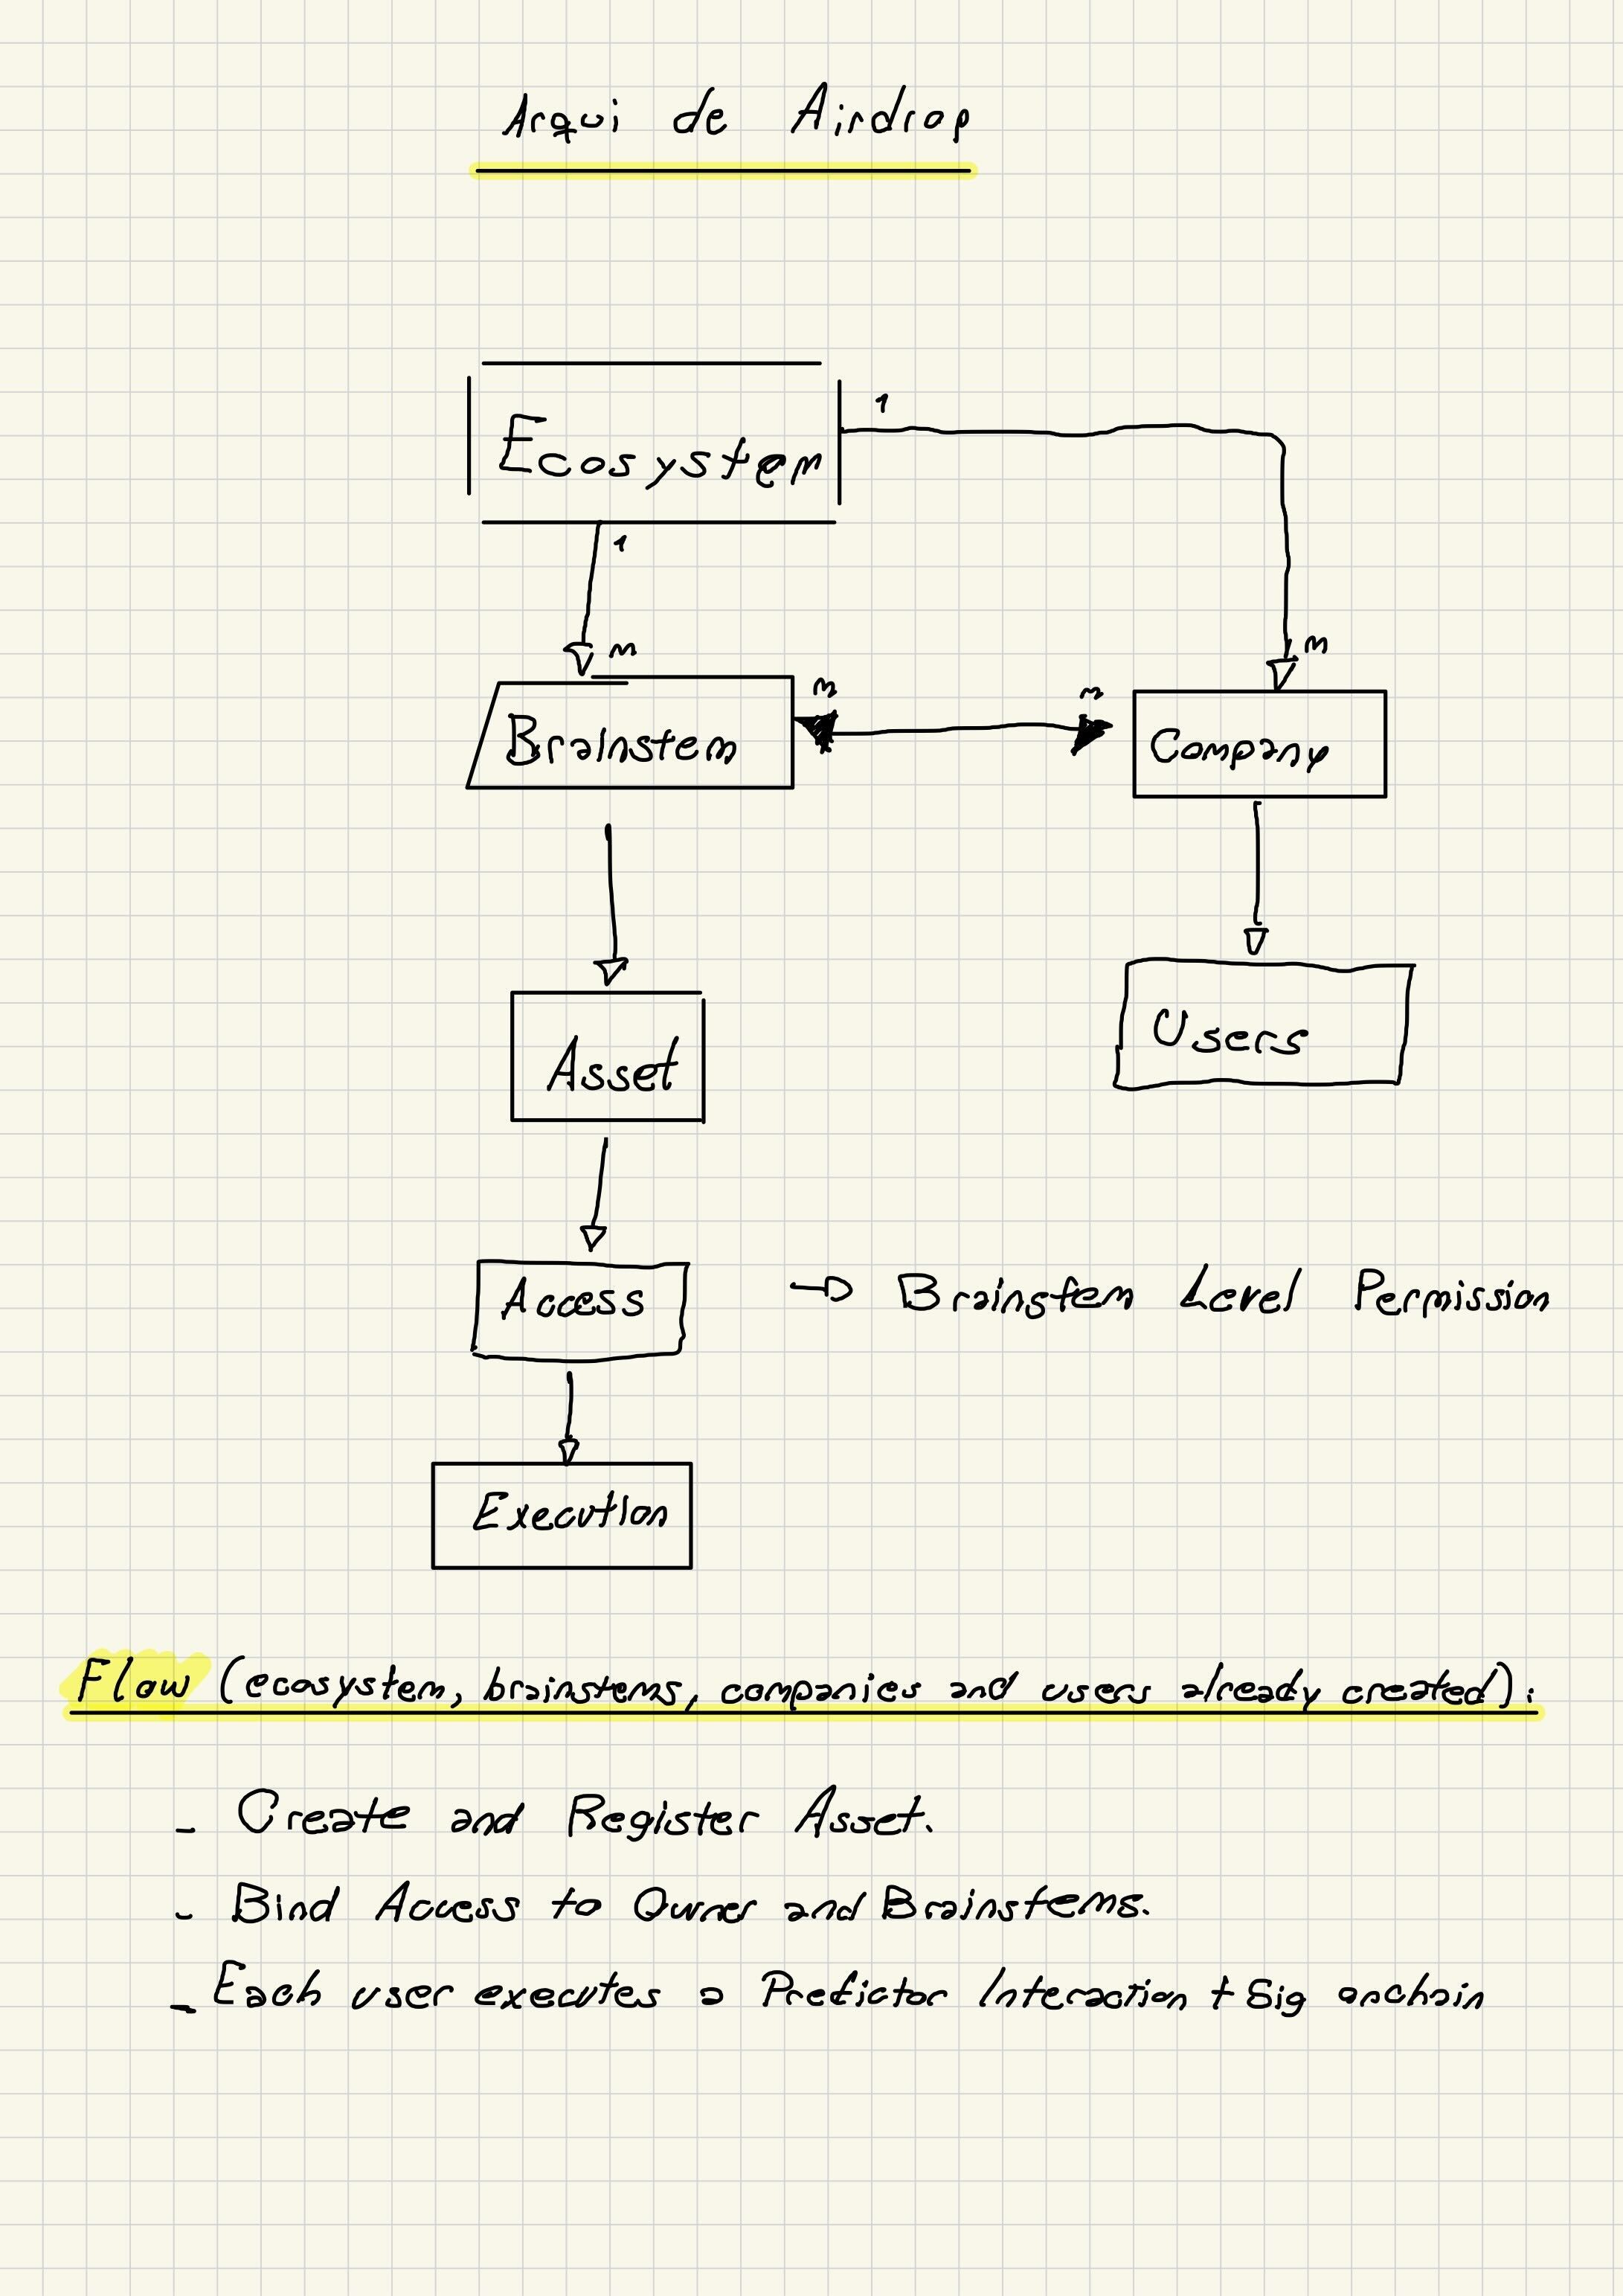 Arqui de Airdrop
Ecosystem
1
1
m
m
Brainstem
m
m
Company
Asset
Users
Access
→ Brainstem Level Permission
Execution
Flow (ecosystem, brainstems, companies and users already created):
- Create and Register Asset.
- Bind Access to Owner and Brainstems.
- Each user executes a Predictor Interaction + Sig onchain